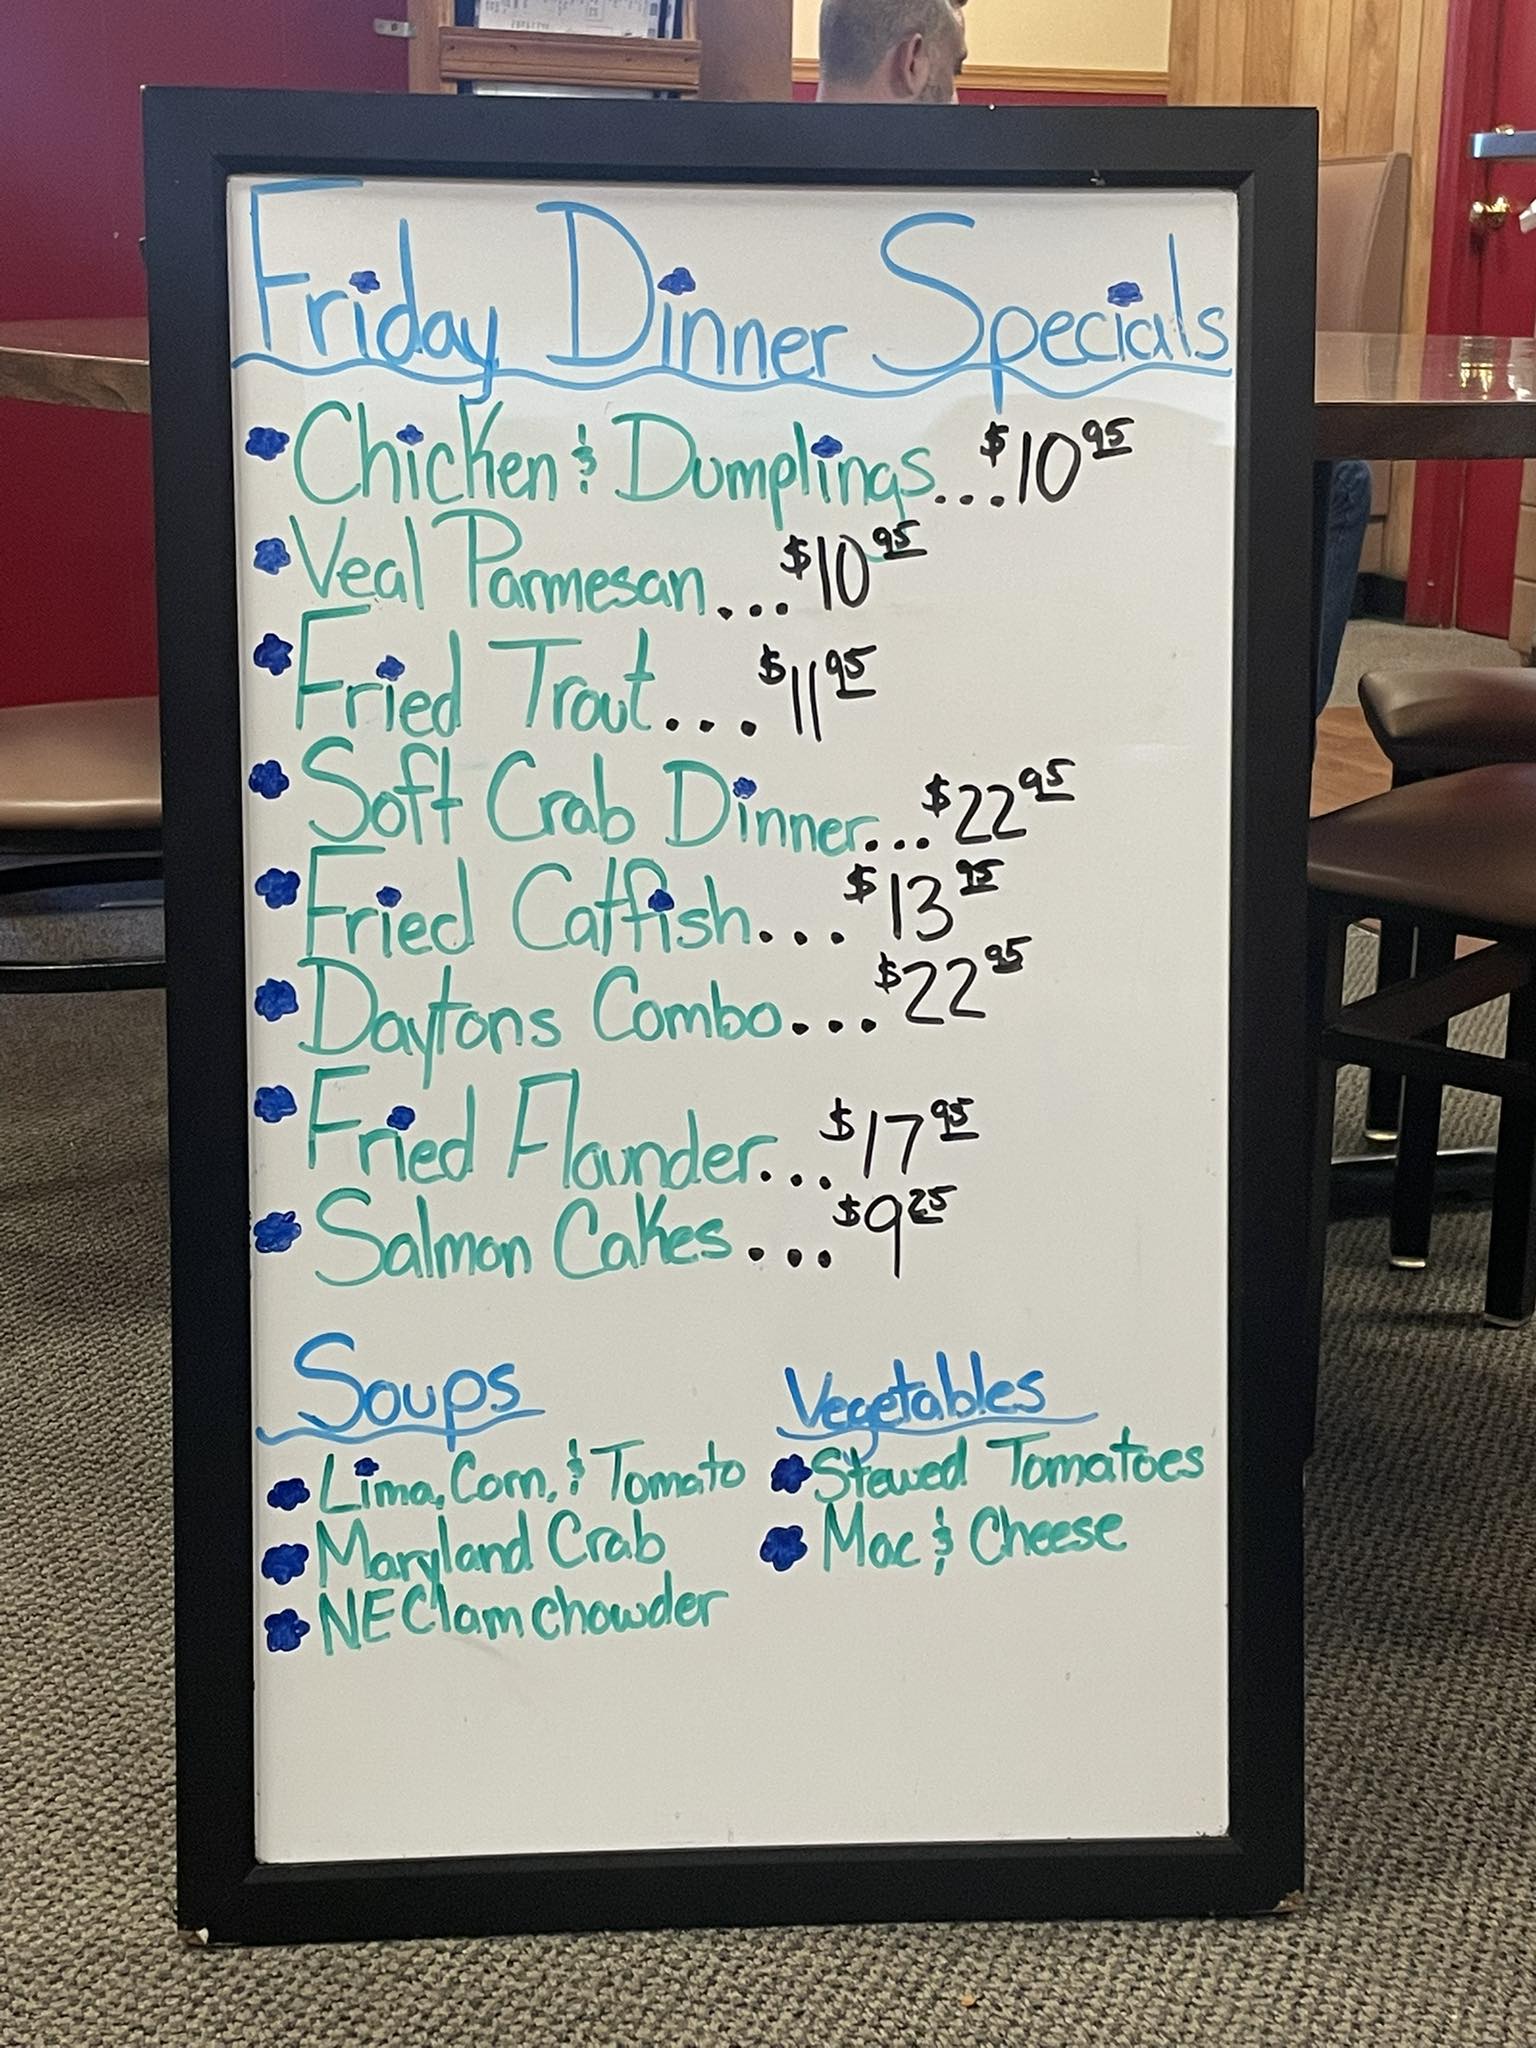 Friday Dinner Specials
Chicken & Dumplings...$10 95
Veal Parmesan...$10 95
Fried Trout...$11 95
Soft Crab Dinner...$22 95
Fried Catfish...$13 95
Daytons Combo...$22 95
Fried Flounder...$17 95
Salmon Cakes...$9 25
Soups
Lima, Corn, & Tomato
Maryland Crab
NE Clam chowder
Vegetables
Stewed Tomatoes
Mac & Cheese